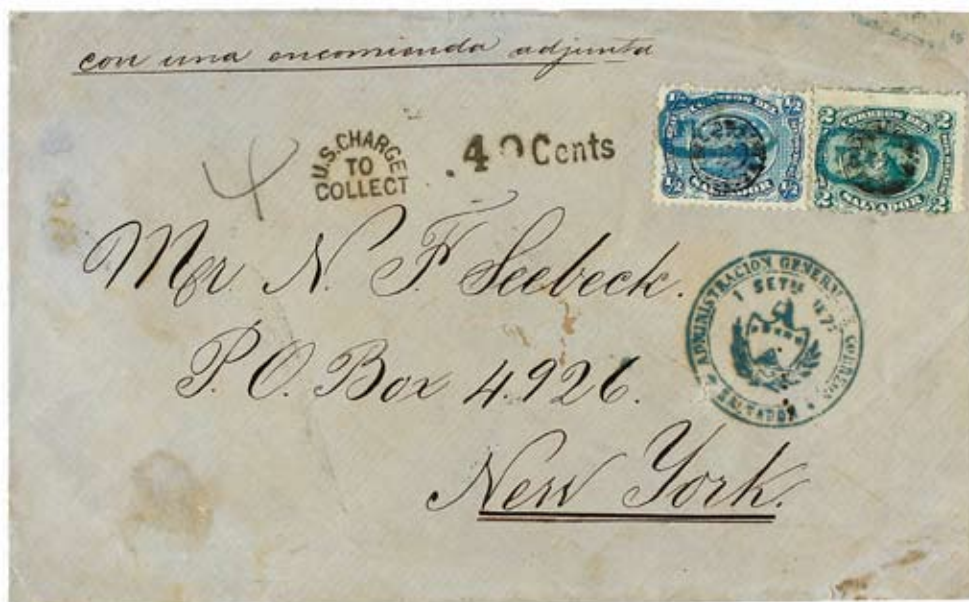 con una encomienda adjunta
U.S. CHARGE
TO
COLLECT
Cents
1/2 1/2
CORREOS DEL
SALVADOR
1/2 1/2
2 2
CORREOS DEL
SALVADOR
2 2
4
Mr N. F. Seebeck.
P. O. Box 4.926.
New York.
ADMINISTRACION GENERAL CORREOS
1 SET
SALVADOR